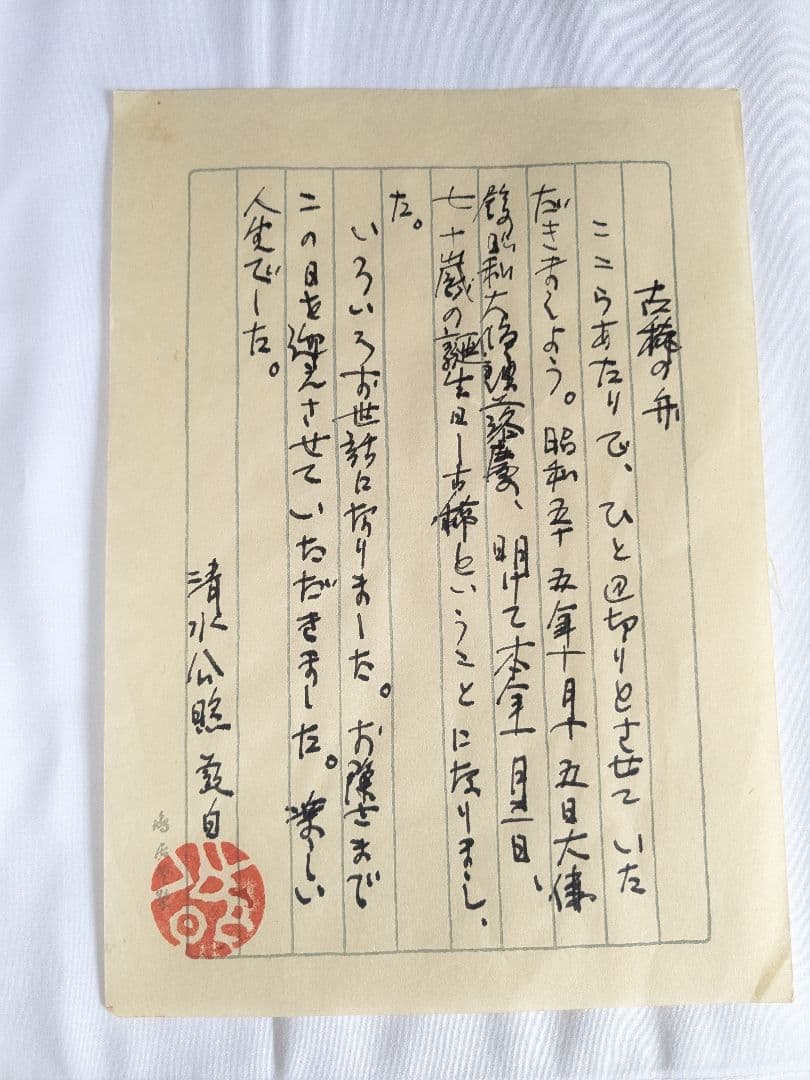 古稀の弁
ここらあたりで、ひと区切りとさせていた
だきましょう。昭和五十五年十月十五日大佛
殿昭和大修理落慶、明けて本年一月三日、
七十歳の誕生日―古稀ということになりまし
た。
いろいろお世話になりました。お陰さまで
この日を迎えさせていただきました。楽しい
人生でした。
清水公照 敬白